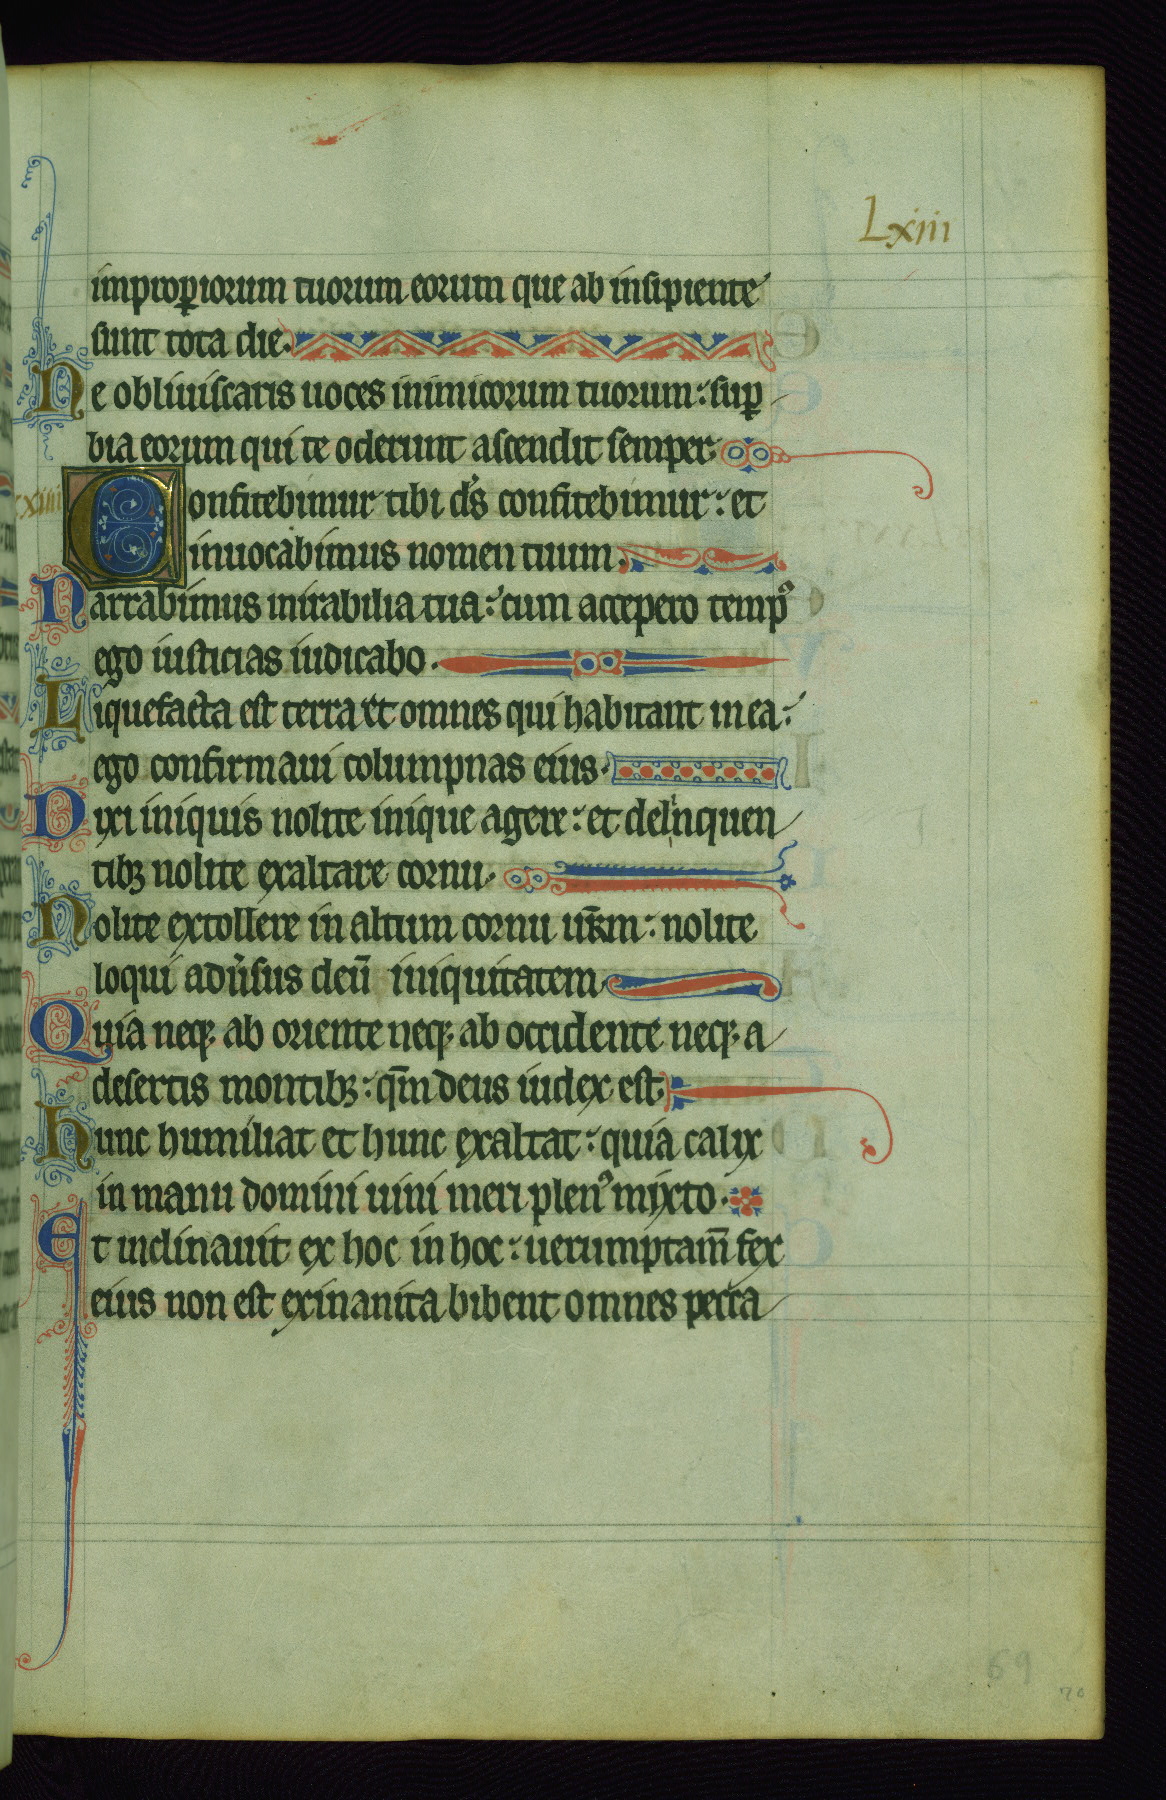 Lxiii
improꝑiorum tuorum eorum que ab insipiente
sunt tota die.
Ne obliuiscaris uoces inimicorum tuorum: suꝑ
bia eorum qui te oderunt ascendit semper.
Confitebimur tibi ds̄ confitebimur: et
inuocabimus nomen tuum.
Narrabimus mirabilia tua: cum accepero tempꝰ
ego iusticias iudicabo.
Liquefacta est terra et omnes qui habitant in ea:
ego confirmaui columpnas eius.
Dixi iniquis nolite inique agere: et delinquen
tibꝫ nolite exaltare cornu.
Nolite extollere in altum cornu ur̄m: nolite
loqui adu̾sus deū iniquitatem
Quia neqꝫ ab oriente neqꝫ ab occidente neqꝫ a
desertis montibꝫ: qm̄ deus iudex est
hunc humiliat et hunc exaltat: quia calix
in manu domini uini meri plenꝰ mixto.
Et inclinauit ex hoc in hoc: uerumptam̄ fex
eius non est exinanita bibent omnes pecca
69
70